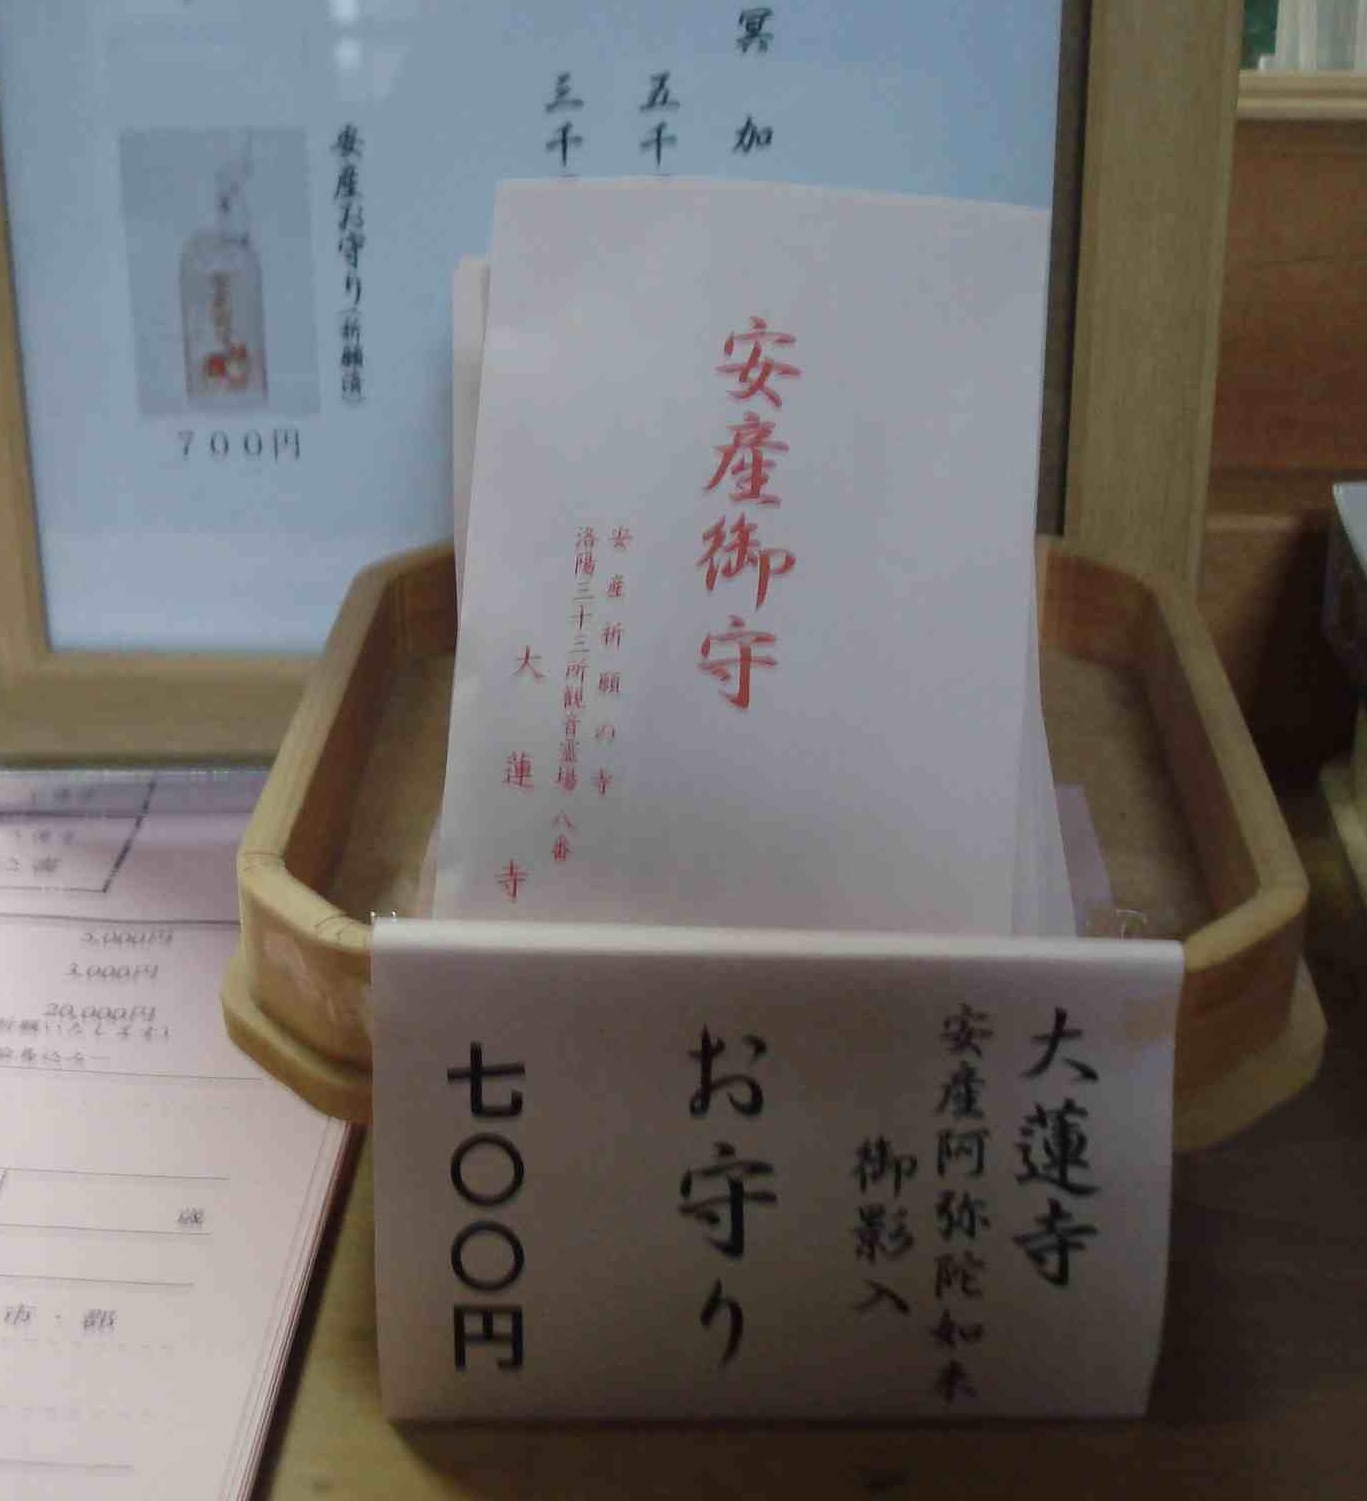 冥加
五千
三千
安産お守り(祈願済)
700円
安産御守
安産祈願の寺
洛陽三十三所観音霊場 八番
大蓮寺
大蓮寺
安産阿弥陀如来
御影入
お守り
七〇〇円
5,000円
3,000円
20,000円
歳
市・郡